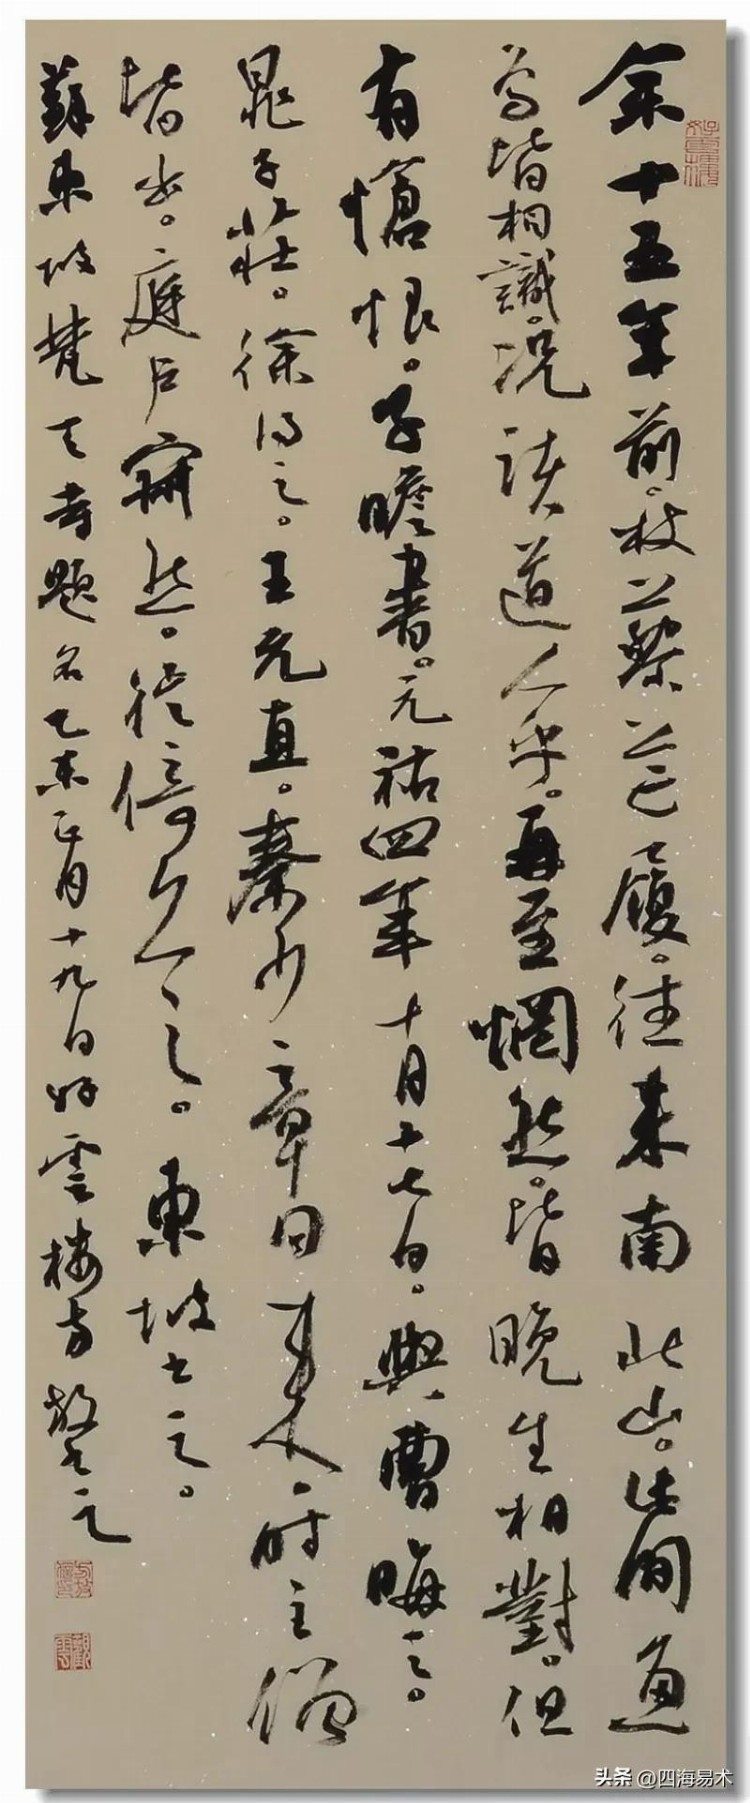 余十五年前。杖藜芒履。往来南北山。此间魚
鸟皆相識。况諸道人乎。再至惘然。皆晚生相對。但
有愴恨。子瞻書。元祐四年十月十七日。與曹晦之。
晁子莊。徐得之。王元直。秦少章同来。時主僧
皆出。庭户寂然。徙倚久之。東坡书之。
蘇東坡梵天寺題名乙未正月十九日好雲楼方放书之
头条 @四海易术